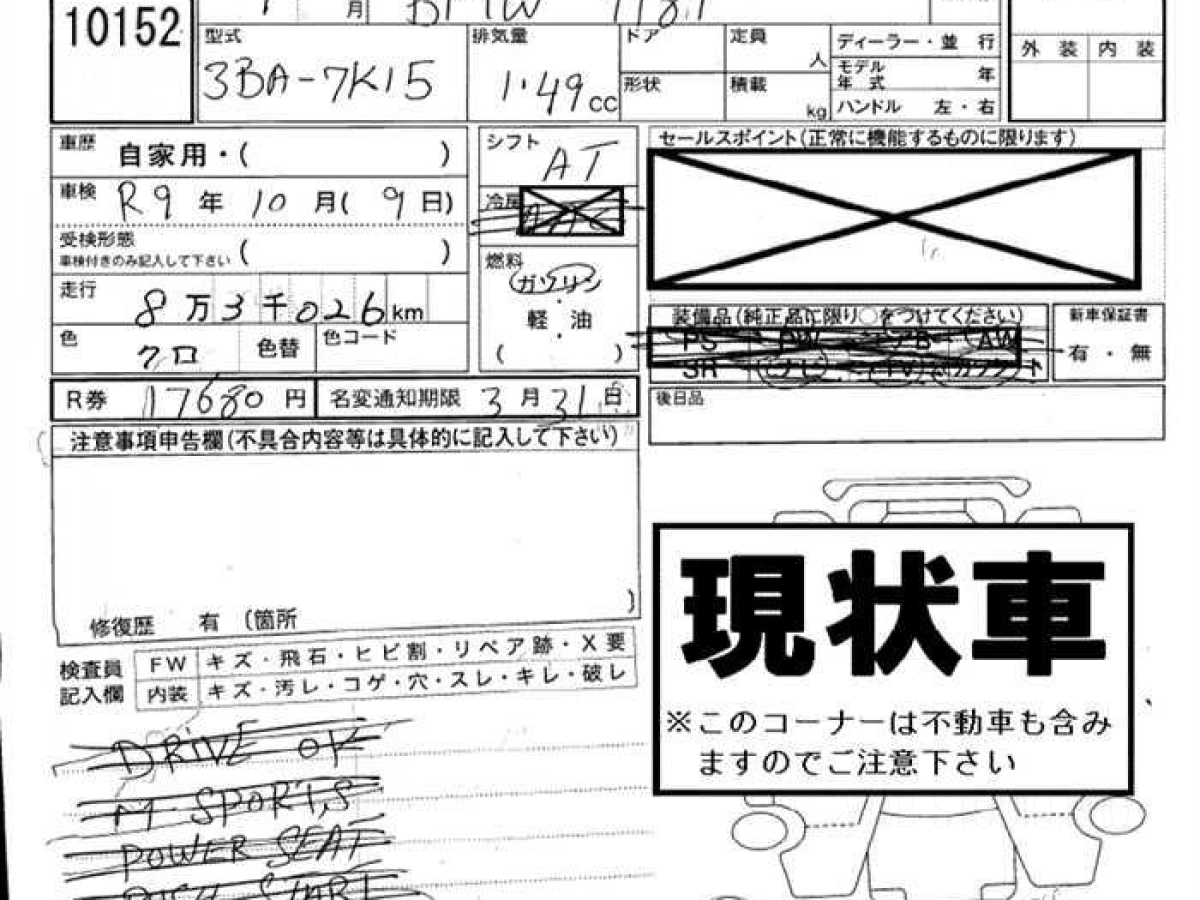 10152
月 BMW 118i
型式 排気量 ドア 定員 人 ディーラー・並 行
3BA-7K15 1.49 cc 形状 積載 kg モデル年式 年
ハンドル 左・右
外 装 内 装
車歴 自家用・( )
車検 R9 年 10 月( 9 日)
受検形態 ( )
車検付きのみ記入して下さい
走行 8 万 3 千 026 km
色 クロ 色替 色コード
シフト AT
冷房
燃料
ガソリン
・
軽 油
( )
セールスポイント(正常に機能するものに限ります)
装備品(純正品に限り○をつけてください)
PS PW エアB AW
SR ナビ TV カワ
新車保証書
有 ・ 無
R券 17680 円 名変通知期限 3 月 31 日
後日品
注意事項申告欄(不具合内容等は具体的に記入して下さい)
修復歴 有 (箇所 )
検査員記入欄
FW キズ・飛石・ヒビ割・リペア跡・X要
内装 キズ・汚レ・コゲ・穴・スレ・キレ・破レ
DRIVE OK
M SPORTS
POWER SEAT
PUSH START
現状車
※このコーナーは不動車も含み
ますのでご注意下さい